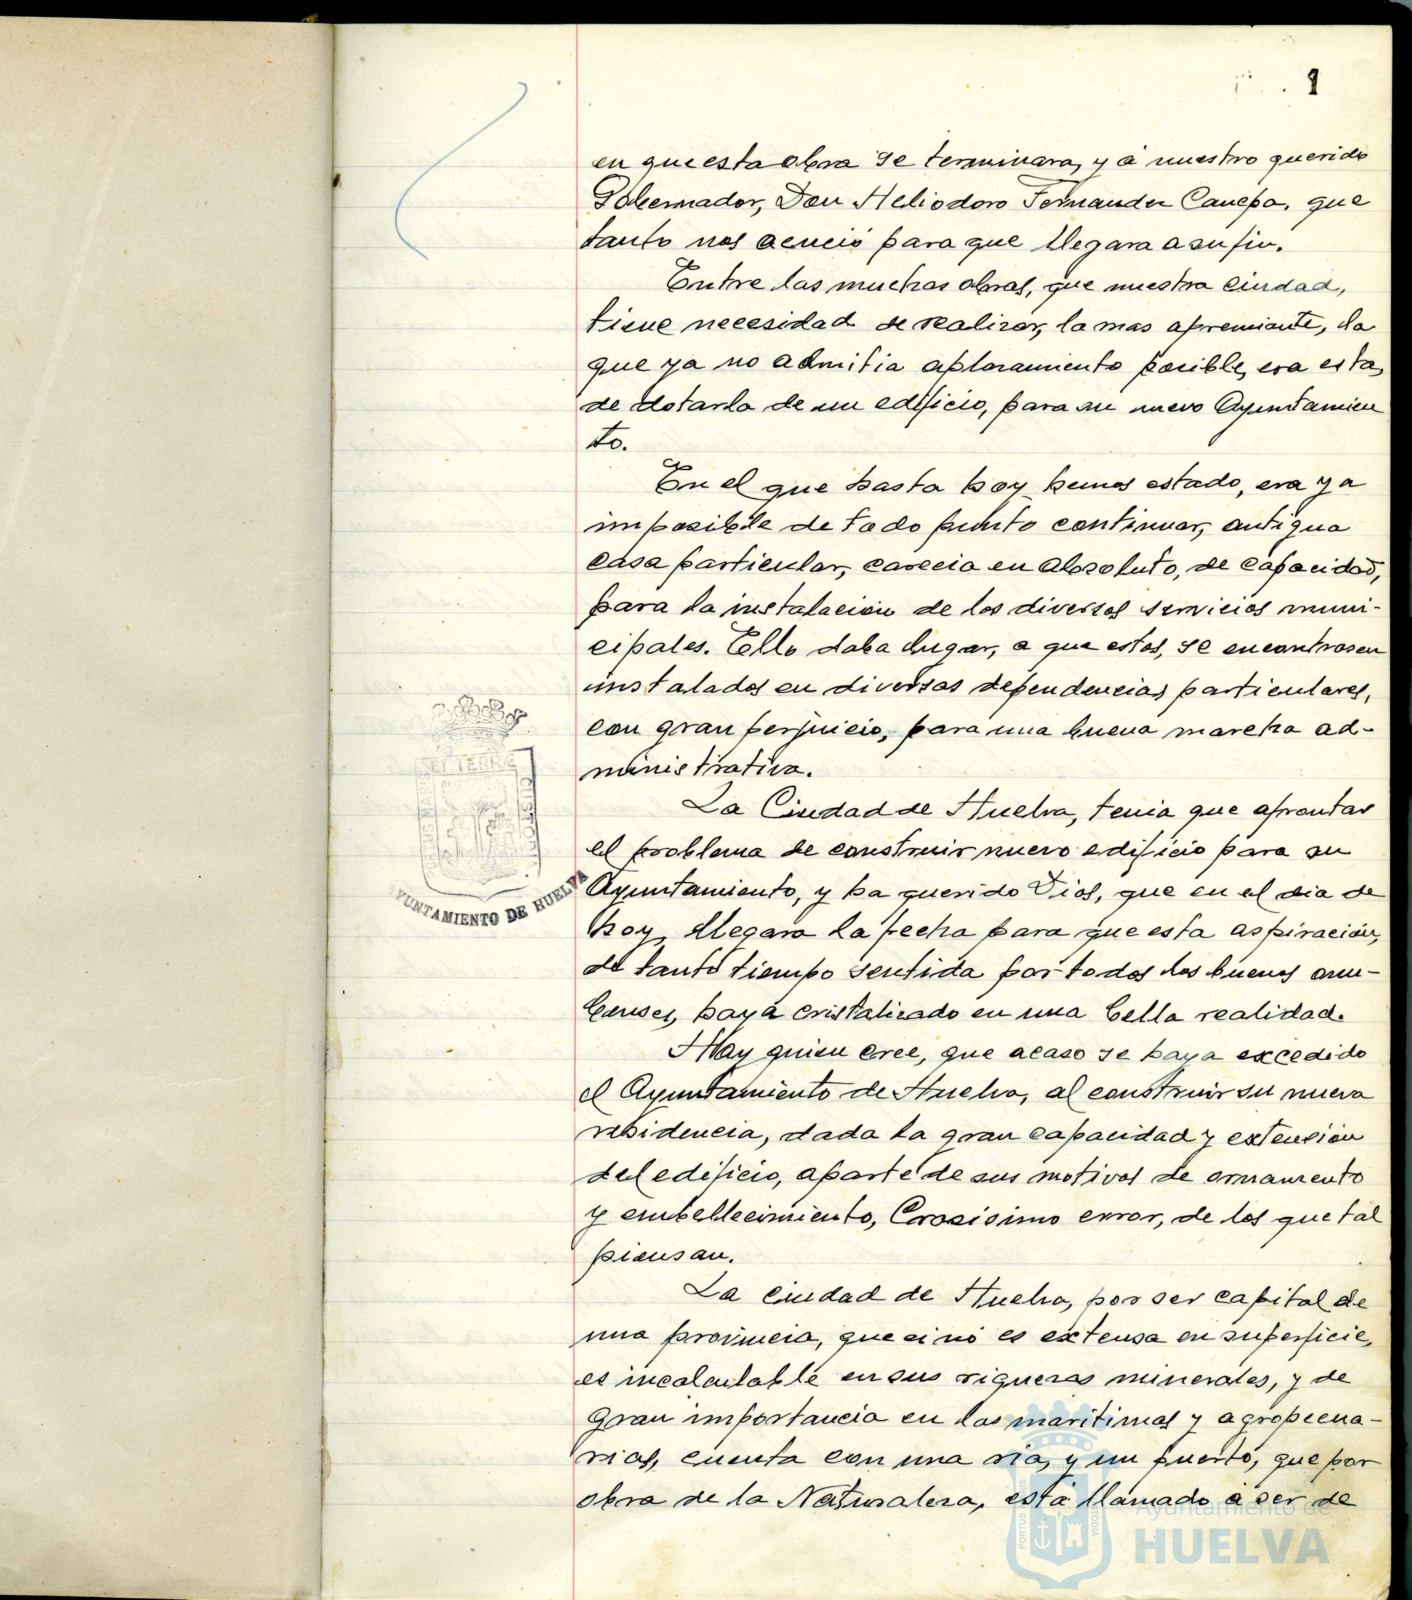 1
en que esta obra se terminara, y á nuestro querido
Gobernador, Don Heliodoro Fernandez Canepa, que
tanto nos acució para que llegara a su fin.
Entre las muchas obras, que nuestra ciudad,
tiene necesidad de realizar, la mas apremiante, la
que ya no admitia aplazamiento posible, era esta,
de dotarla de un edificio, para su nuevo Ayuntamien
to.
En el que hasta hoy hemos estado, era ya
imposible de todo punto continuar, antigua
casa particular, carecia en absoluto, de capacidad,
para la instalación de los diversos servicios muni-
cipales. Ello daba lugar, a que estos, se encontrasen
instalados en diversas dependencias particulares,
con gran perjuicio, para una buena marcha ad-
ministrativa.
La Ciudad de Huelva, tenia que afrontar
el problema de construir nuevo edificio para su
Ayuntamiento, y ha querido Dios, que en el dia de
hoy, llegara la fecha para que esta aspiración,
de tanto tiempo sentida por todos los buenos onu-
benses, haya cristalizado en una bella realidad.
Hay quien cree, que acaso se haya excedido
el Ayuntamiento de Huelva, al construir su nueva
residencia, dada la gran capacidad y extensión
del edificio, aparte de sus motivos de ornamento
y embellecimiento, Crasisimo error, de los que tal
piensan.
La ciudad de Huelva, por ser capital de
una provincia, que si nó es extensa en superficie,
es incalculable en sus riquezas minerales, y de
gran importancia en las maritimas y agropecua-
rias, cuenta con una ria, y un puerto, que por
obra de la Naturaleza, está llamado á ser de
AYUNTAMIENTO DE HUELVA
Ayuntamiento de
HUELVA